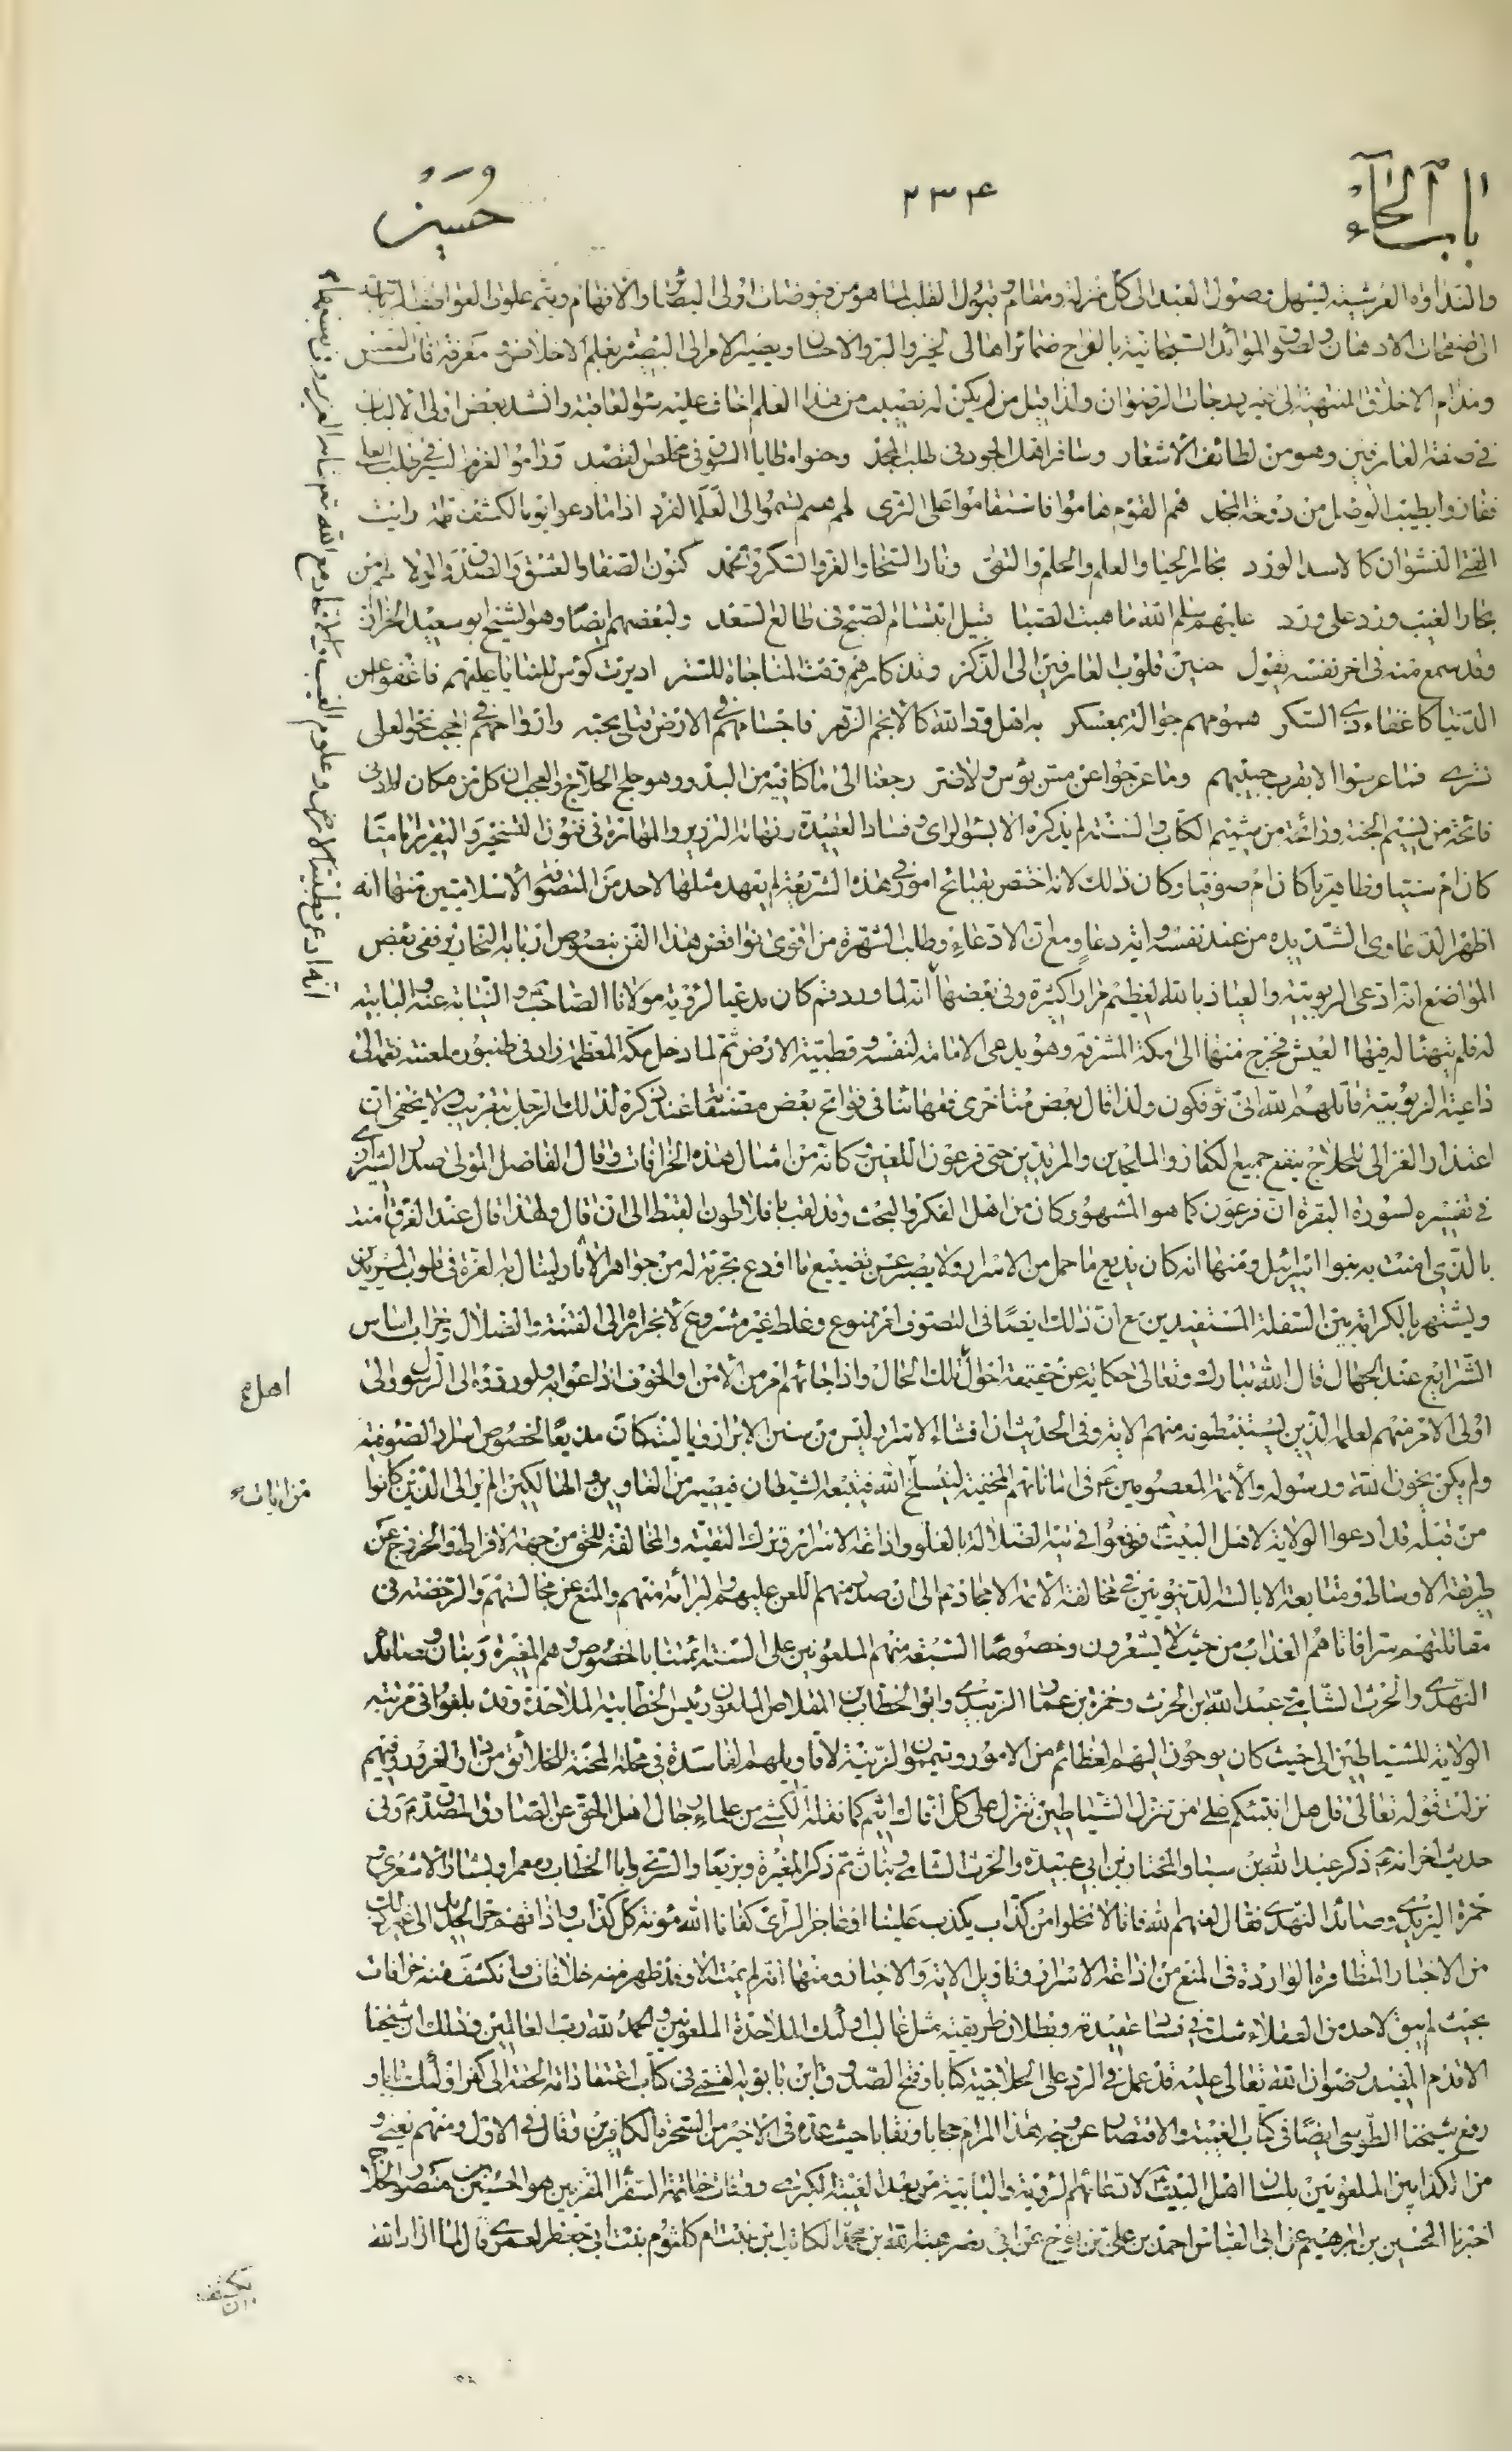 باب الحاء
٢٣٤
حسين
والنداوة العرشية ليسهل وصول العبد الى كل منزلة ومقام وقبول القلب لما هو من فيوضات اولى البصائر والافهام
ومذام الاخلاق المنتهية الى غير درجات الرضوان ولذا قيل من لم يكن له نصيب من هذا العلم اخاف عليه سوء العاقبة وانشد بعض اولى الالباب
في صفة العارفين وهو من لطائف الاشعار وسافر اهل الجود في طلب المجد وحنوا مطايا الشوق في مخلص القصد
ففازوا بطيب الوصل من دوحة المجد هم القوم هاموا فاستقاموا على الثرى لهم همم تسموا الى العلم الفرد
الفتى النشوان كالاسد الورد بحار الحيا والعلم والحلم والتقى
بحار الغيب ورد على ورد عليهم سلام الله ما هبت الصبا قبيل ابتسام الصبح في طالع السعد ولبعضهم ايضا وهو الشيخ ابو سعيد الخراز
وقد سمع منه في اخر نفسه يقول حنين قلوب العارفين الى الذكر وتذكارهم وقت المناجاة للسر اديرت كؤس للمنايا عليهم فاغفوا عن
الدنيا كاغفاء ذي السكر همومهم جوالة بمعسكر به اهل ود الله كالانجم الزهر فاجسامهم في الارض قتلى بحبه وارواحهم في الحجب نحو العلى
تسرى فما عرسوا الا بقرب حبيبهم وما عرجوا عن مس بؤس ولا ضر رجعنا الى ما كنا فيه من البدو وهو حلج الحلاج والعجب ان كل من مكان له ادنى
فائحة من نسيم الجنة ورائحة من شميم الكتاب والسنة لم يذكره الا بسوء الراى وفساد العقيدة ونهاية التزوير والمهارة في فنون التسخير
كان ام سنيا وظاهريا كان ام صوفيا وكان ذلك لانه اختص بقبائح امور في هذه الشريعة لم يعهد مثلها لاحد من المتصوفة الاسلاميين فمنها انه
اظهر الدعاوى الشديدة من عند نفسه وانه دعا ومع ان الادعاء وطلب الشهرة من اقوى نواقض هذا الفن بنصوص اربابه النحارير ففى بعض
المواضع انه ادعى الربوبية والعياذ بالله العظيم مرارا كثيرة وفي بعضها انه لما ورد قم كان مدعيا لرؤية مولانا الصاحب والنيابة عنه والبابية
له فلم يتهنا له فيها العيش فخرج منها الى مكة المشرفة وهو يدعى الامامة لنفسه وقطبية الارض ثم لما دخل مكة المعظمة زاد في طنبور ملعنته نغمة الى
داعية الربوبية قاتلهم الله انى يؤفكون ولذا قال بعض متاخرى فقهائنا في فواتح بعض مصنفاته عند ذكره لذلك الرجل بتقريب ولا يخفى ان
اعتذار الغزالى للحلاج ينفع جميع الكفار والملحدين والمرتدين حتى فرعون اللعين وكانه من امثال هذه الخرافات قال الفاضل المولى صدر الشيرازى
في تفسيره لسورة البقرة ان فرعون كما هو المشهور كان من اهل الفكر والبحث وقد لقب بافلاطون القبط الى ان قال ولهذا قال عند الغرق امنت
بالذي امنت به بنوا اسرائيل ومنها انه كان يذيع ما حمل من الاسرار ولا يصبر عن تضييع ما اودع بحرية له من جواهر الاثار لينال به العزة في قلوب المريدين
ويشتهر بالكرامة بين السفلة المستفيدين مع ان ذلك ايضا في التصوف امر ممنوع وغلط غير مشروع لانجراره الى الفتنة والضلال وخراب اساس
الشرايع عند الجهال قال الله تبارك وتعالى حكاية عن حقيقة احوال تلك الحال واذا جائهم امر من الامن والخوف اذاعوا به ولو ردوه الى الرسول والى
اولى الامر منهم لعلمه الذين يستنبطونه منهم الاية وفي الحديث ان افشاء الاسرار ليس من سنن الابرار ويا ليته كان مذيعا لخصوص اسرار الصوفية
ولم يكن يخون الله ورسوله والائمة المعصومين ع في اماناتهم المخفية لينسلخ الله فيتبعه الشيطان فيصير من الغاوين والهالكين الم تر الى الذين كانوا
من قبله قد ادعوا الولاية لاهل البيت فوقعوا في تيه الضلالة بالغلو واذاعة الاسرار وترك التقية والمخالفة للحق من جهة الافراط والخروج عن
طريقة الاوساط ومتابعة الابالسة الدنيويين في مخالفة الائمة الامجاد ثم الى ان صدر منهم اللعن عليهم والبرائة منهم والمنع عن مجالستهم والرخصة في
مقاتلتهم سرا فاتاهم العذاب من حيث لا يشعرون وخصوصا السبعة منهم الملعونين على السنة ائمتنا بالخصوص وهم المغيرة وبنان وصائد
النهدى والحرث الشامى وعبد الله بن الحرث وحمزة بن عمار الزبيدى وابو الخطاب بن المقلاص الملعون رئيس الخطابية الملاحدة وقد بلغوا في مرتبة
الولاية للشياطين الى حيث كان يوحون اليهم لعظائم من الامور ويتمون الزينة لاقاويلهم الفاسدة في محلة المحنة للخلائق من دار الغرور وفيهم
نزلت قوله تعالى قل هل انبئكم على من تنزل الشياطين تنزل على كل افاك اثيم كما نقله الكشى من علماء رجال اهل الحق عن الصادق المصدق ع وفي
حديث اخر انه ع ذكر عبد الله بن سبا والمختار بن ابي عبيدة والحرث الشامى وبنان ثم ذكر المغيرة وبزيعا والسرى وابا الخطاب ومعمرا وبشار الاشعرى و
حمزة اليزيدى وصائد النهدى فقال لعنهم الله فانا لا نخلوا من كذاب يكذب علينا او عاجز الراى كفانا الله مؤنة كل كذاب واذاقهم حر الحديد الى غير ذلك
من الاخبار المتظافرة الواردة في المنع من اذاعة الاسرار وتاويل الاية والاخبار ومنها انه لم يمت الا وقد ظهر منه خلافات وانكشف منه خرافات
بحيث لم يبق لاحد من العقلاء شك في فساد عقيدته وبطلان طريقته مثل غالب اولئك الملاحدة الملعونين والحمد لله رب العالمين وذلك ان شيخنا
الاقدم المفيد رضوان الله تعالى عليه قد عمل في الرد على الحلاجية كتابا وفتح الصدوق ابن بابويه القمى في كتاب اعتقاداته الحقة الى كفر اولئك بابا و
رفع شيخنا الطوسى ايضا في كتاب الغيبة والاقتصاد عن وجه هذا المرام حجابا ونقابا حيث عده في الاخير من السحرة الكافرين وقال في الاول ومنهم يعنى و
من الكذابين الملعونين بلسان اهل البيت لادعائهم الرؤية والبابية من بعد الغيبة الكبرى ووفات خاتمة السفراء المقربين هو الحسين بن منصور الحلاج
اخبرنا الحسين بن ابرهيم عن ابى العباس احمد بن على بن نوح عن ابى نصر هبة الله بن محمد الكاتب ابن بنت ام كلثوم بنت ابى جعفر العمرى قال لما اراد الله
اهل
من ايات